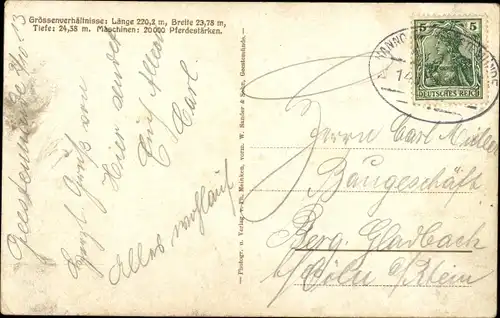 Grössenverhältnisse: Länge 220,3 m, Breite 23,78 m,
Tiefe: 24,38 m. Maschinen: 20000 Pferdestärken.
Geestemünde 2/10 13
Gruß von
Hier sendet
Euch Allen
Carl
Alles wohlauf
Photogr. u. Verlag v. Th. Meinken, vorm. W. Sander & Sohn, Geestemünde.
5 5
DEUTSCHES REICH
HANNO
Herrn Carl Müller
Baugeschäft
Berg. Gladbach
b/Cöln a/Rhein